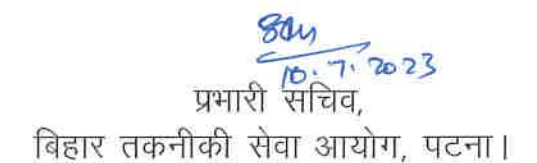 10.7.2023
प्रभारी सचिव,
बिहार तकनीकी सेवा आयोग, पटना।